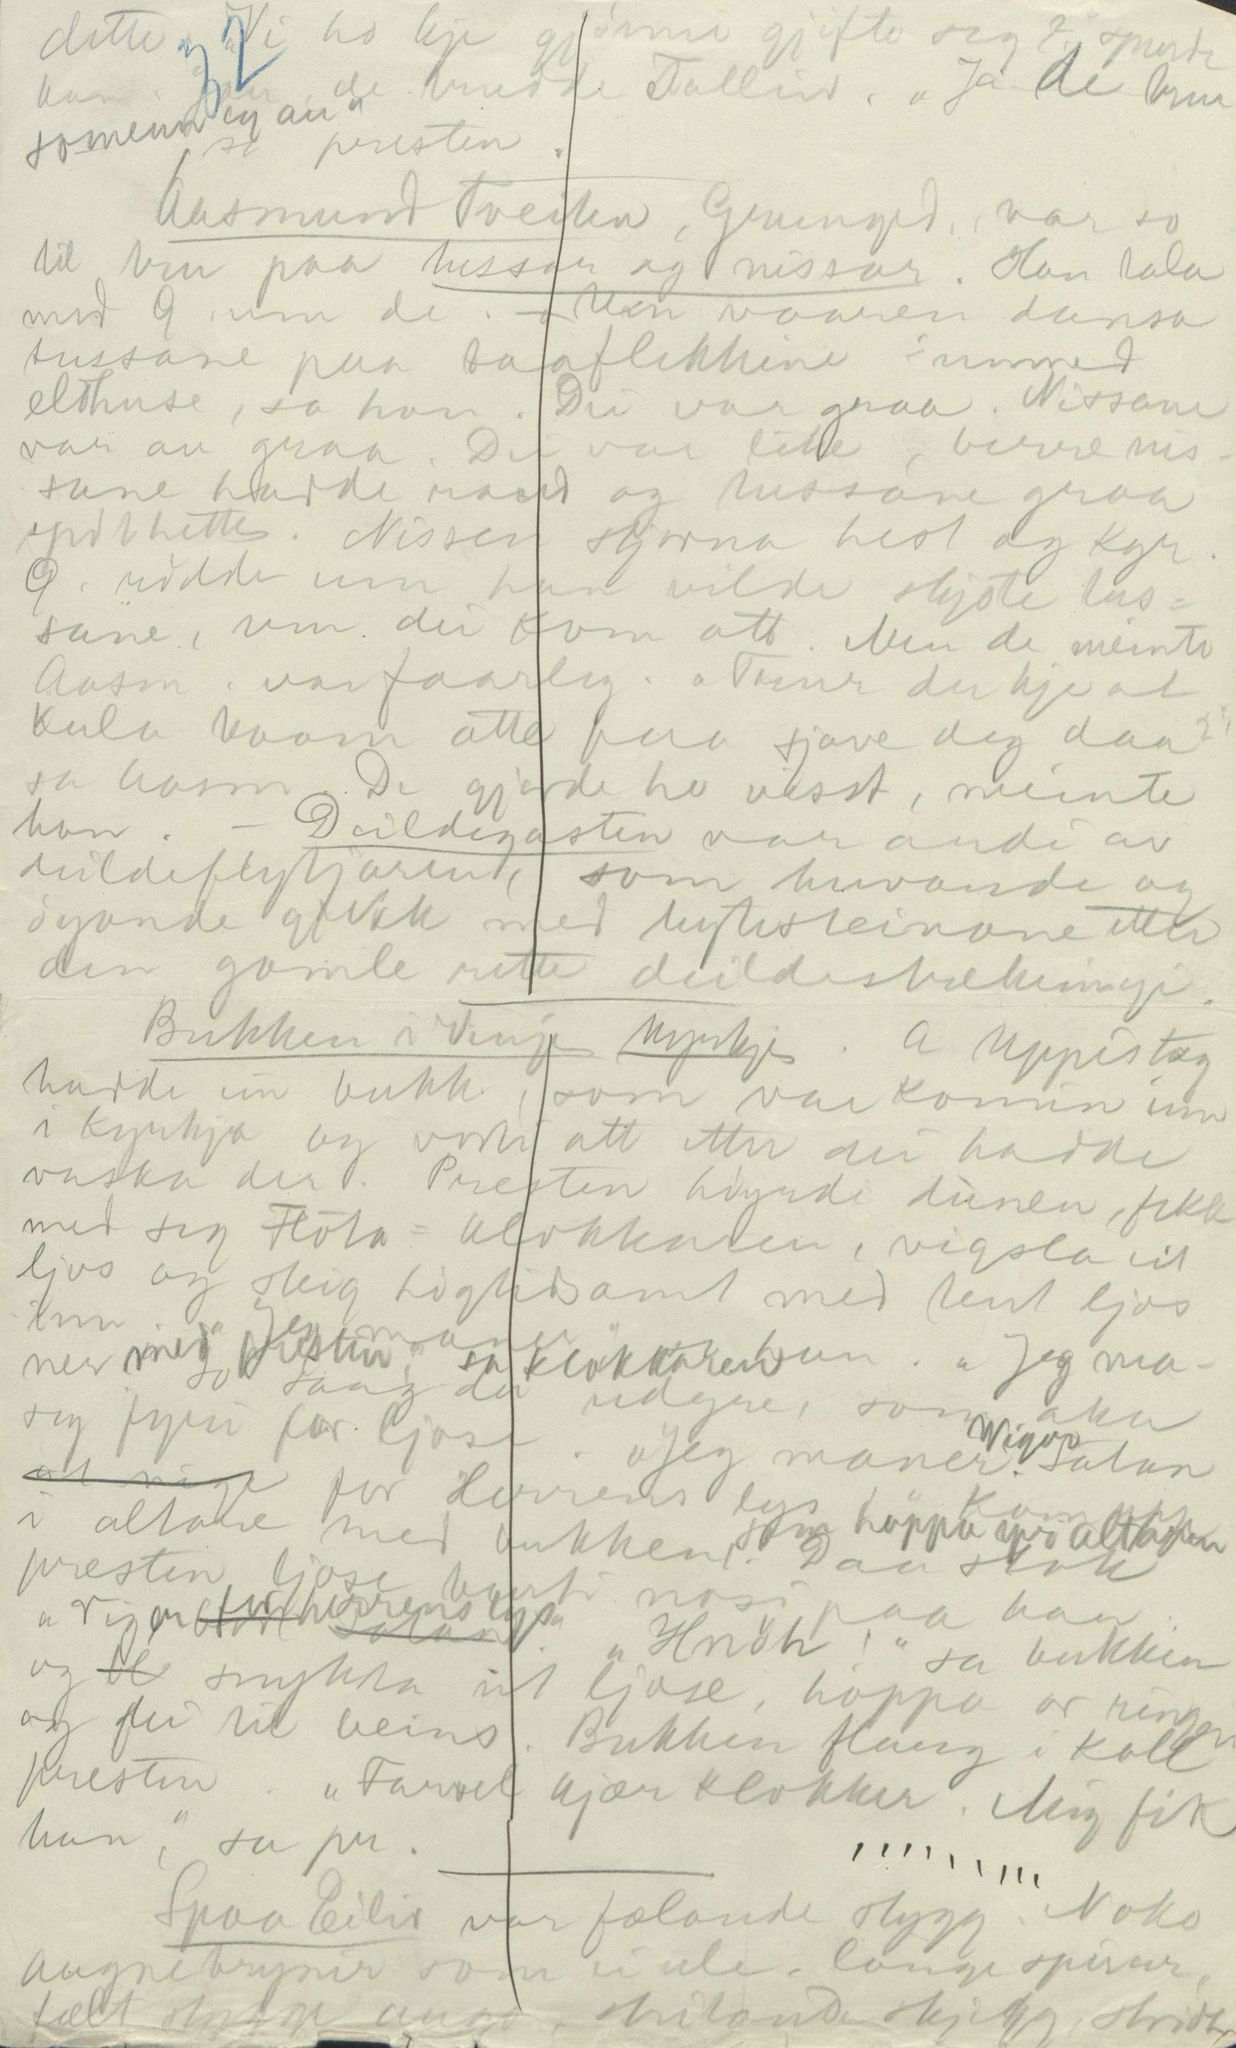 dette. "Vi ho kje gjönni gjifte seg?" spurde
han. de trudde Talliv. "Ja de trur
somenn eg au"
sa presten.
32
Aasmund Tveiten, Grunged., var so
til tru paa tussar og nissar. Han tala
med G. um de. - Um vaaren dansa
tussane paa taaflekkine innmed
eldhuse, sa han. Dei var graa. Nissane
var au graa. Dei var like, berre nis-
sane hadde raud og tussane graa
spidthette. Nissen stjorna hest og kyr.
G. rödde um han vilde skjote tus-
sane, um dei kom att. Men de meinte
Aasm. var faarleg. "Trur du kje at
kula kaam atte paa sjave deg daa?"
sa Aasm. De gjorde ho visst, meinte
han. - Deildegasten var andi av
deildeflytjaren, som huvande og
öyande gjekk med lyhtesteinane etter
den gamle rette deildestrekningi.
Bukken i Vinje kyrkje. A Uppistog
hadde ein bukk, som var komin inn
i kyrkja og vorti att etter dei hadde
vaska der. Presten höyrde dunen, fekk
med seg Flöta-klokkaren, vigsla eit
ljos og steig högtidsamt med tent ljos
inn. "Jeg maner" sa han. "Jeg ma-
ner med presten," sa klokkaren
So saag dei udyre, som aka
seg fyri for ljose. "Jeg maner. Vigop Satan
at vige for Herrens lys Kom upp
i altare med bukken, som höppa ivi altaren
Daa stak
presten ljose burti nosi paa han.
"Vig for herrens lys" Satan. "Hnöh!" sa bukken
og snykta ut ljose, höppa or ringen
og fli til beins. Bukken flaug i koll
presten. "Farvel kjær klokker. Mig fik
han," sa pr.
Spaa Eiliv var fælande stygg. Noko
augnebrynir som i ule. lange spirur,
fælt stygge augo, stritande skjegg, stridt